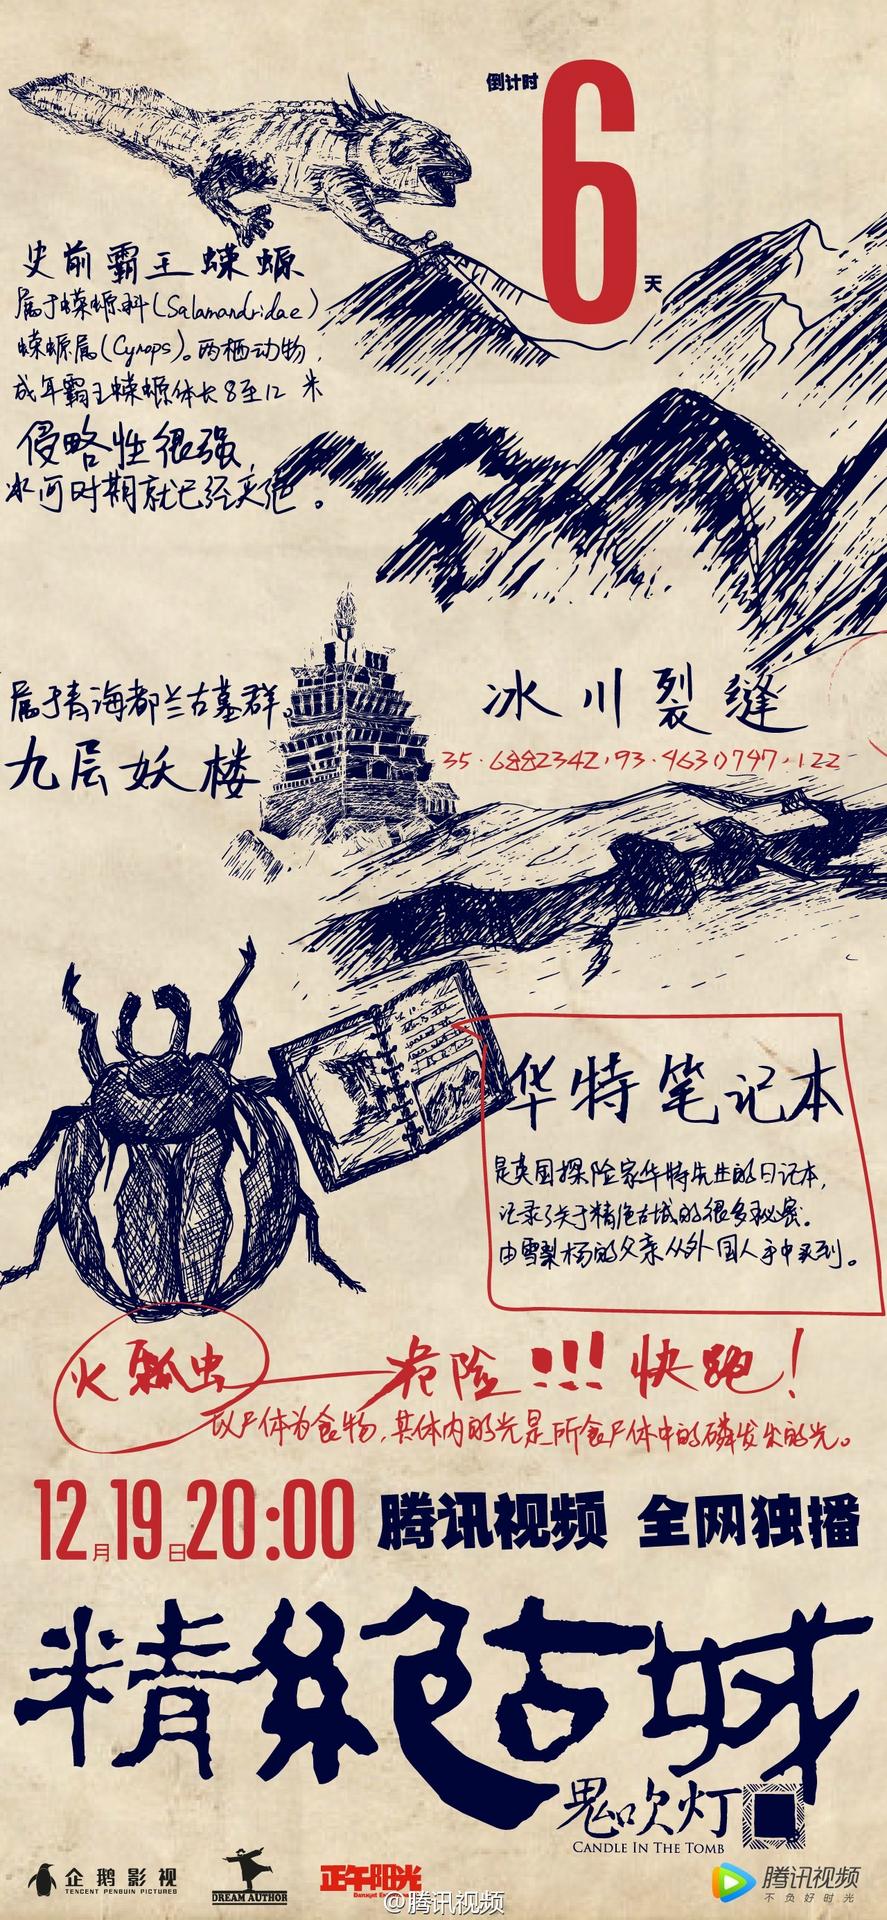 倒计时
6
天
史前霸王蝾螈
属于蝾螈科(Salamandridae)
蝾螈属(Cynops)。两栖动物,
成年霸王蝾螈体长8至12米
侵略性很强,
冰河时期就已经灭绝。
属于青海都兰古墓群。
九层妖楼
冰川裂缝
35.6882342,93.4630747,122
华特笔记本
是英国探险家华特先生的日记本,
记录了关于精绝古城的很多秘密。
由雪梨杨的父亲从外国人手中买到。
火瓢虫——危险!!!快跑!
以尸体为食物,其体内的光是所食尸体中的磷发出的光。
12月19日20:00 腾讯视频 全网独播
精絶古城
鬼吹灯
CANDLE IN THE TOMB
企鹅影视
TENCENT PENGUIN PICTURES
DREAM AUTHOR
正午阳光
@腾讯视频
腾讯视频
不负好时光